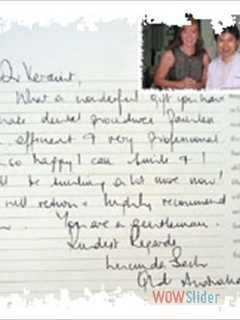 What a wonderful gift you have
make dental procedures painless
efficient & very professional
so happy I can smile & !
be smiling a lot more now!
will return & highly recommend
You are a gentleman.
Kindest Regards
Lucinda
Qld Australia
WOWSlider